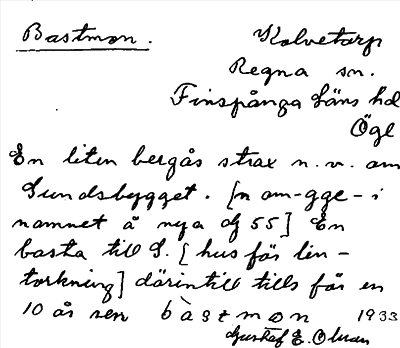 Bastmon.
Kolvetorp
Regna sn.
Finspånga läns hd
Ögl
En liten bergås strax n.v. om
Sundsbygget. [n om -gge- i
namnet å nya dj 55] En
basta till S. [hus för lin-
torkning] därintill tills för en
10 år sen bàstmon 1933
Gustaf E. Olsson